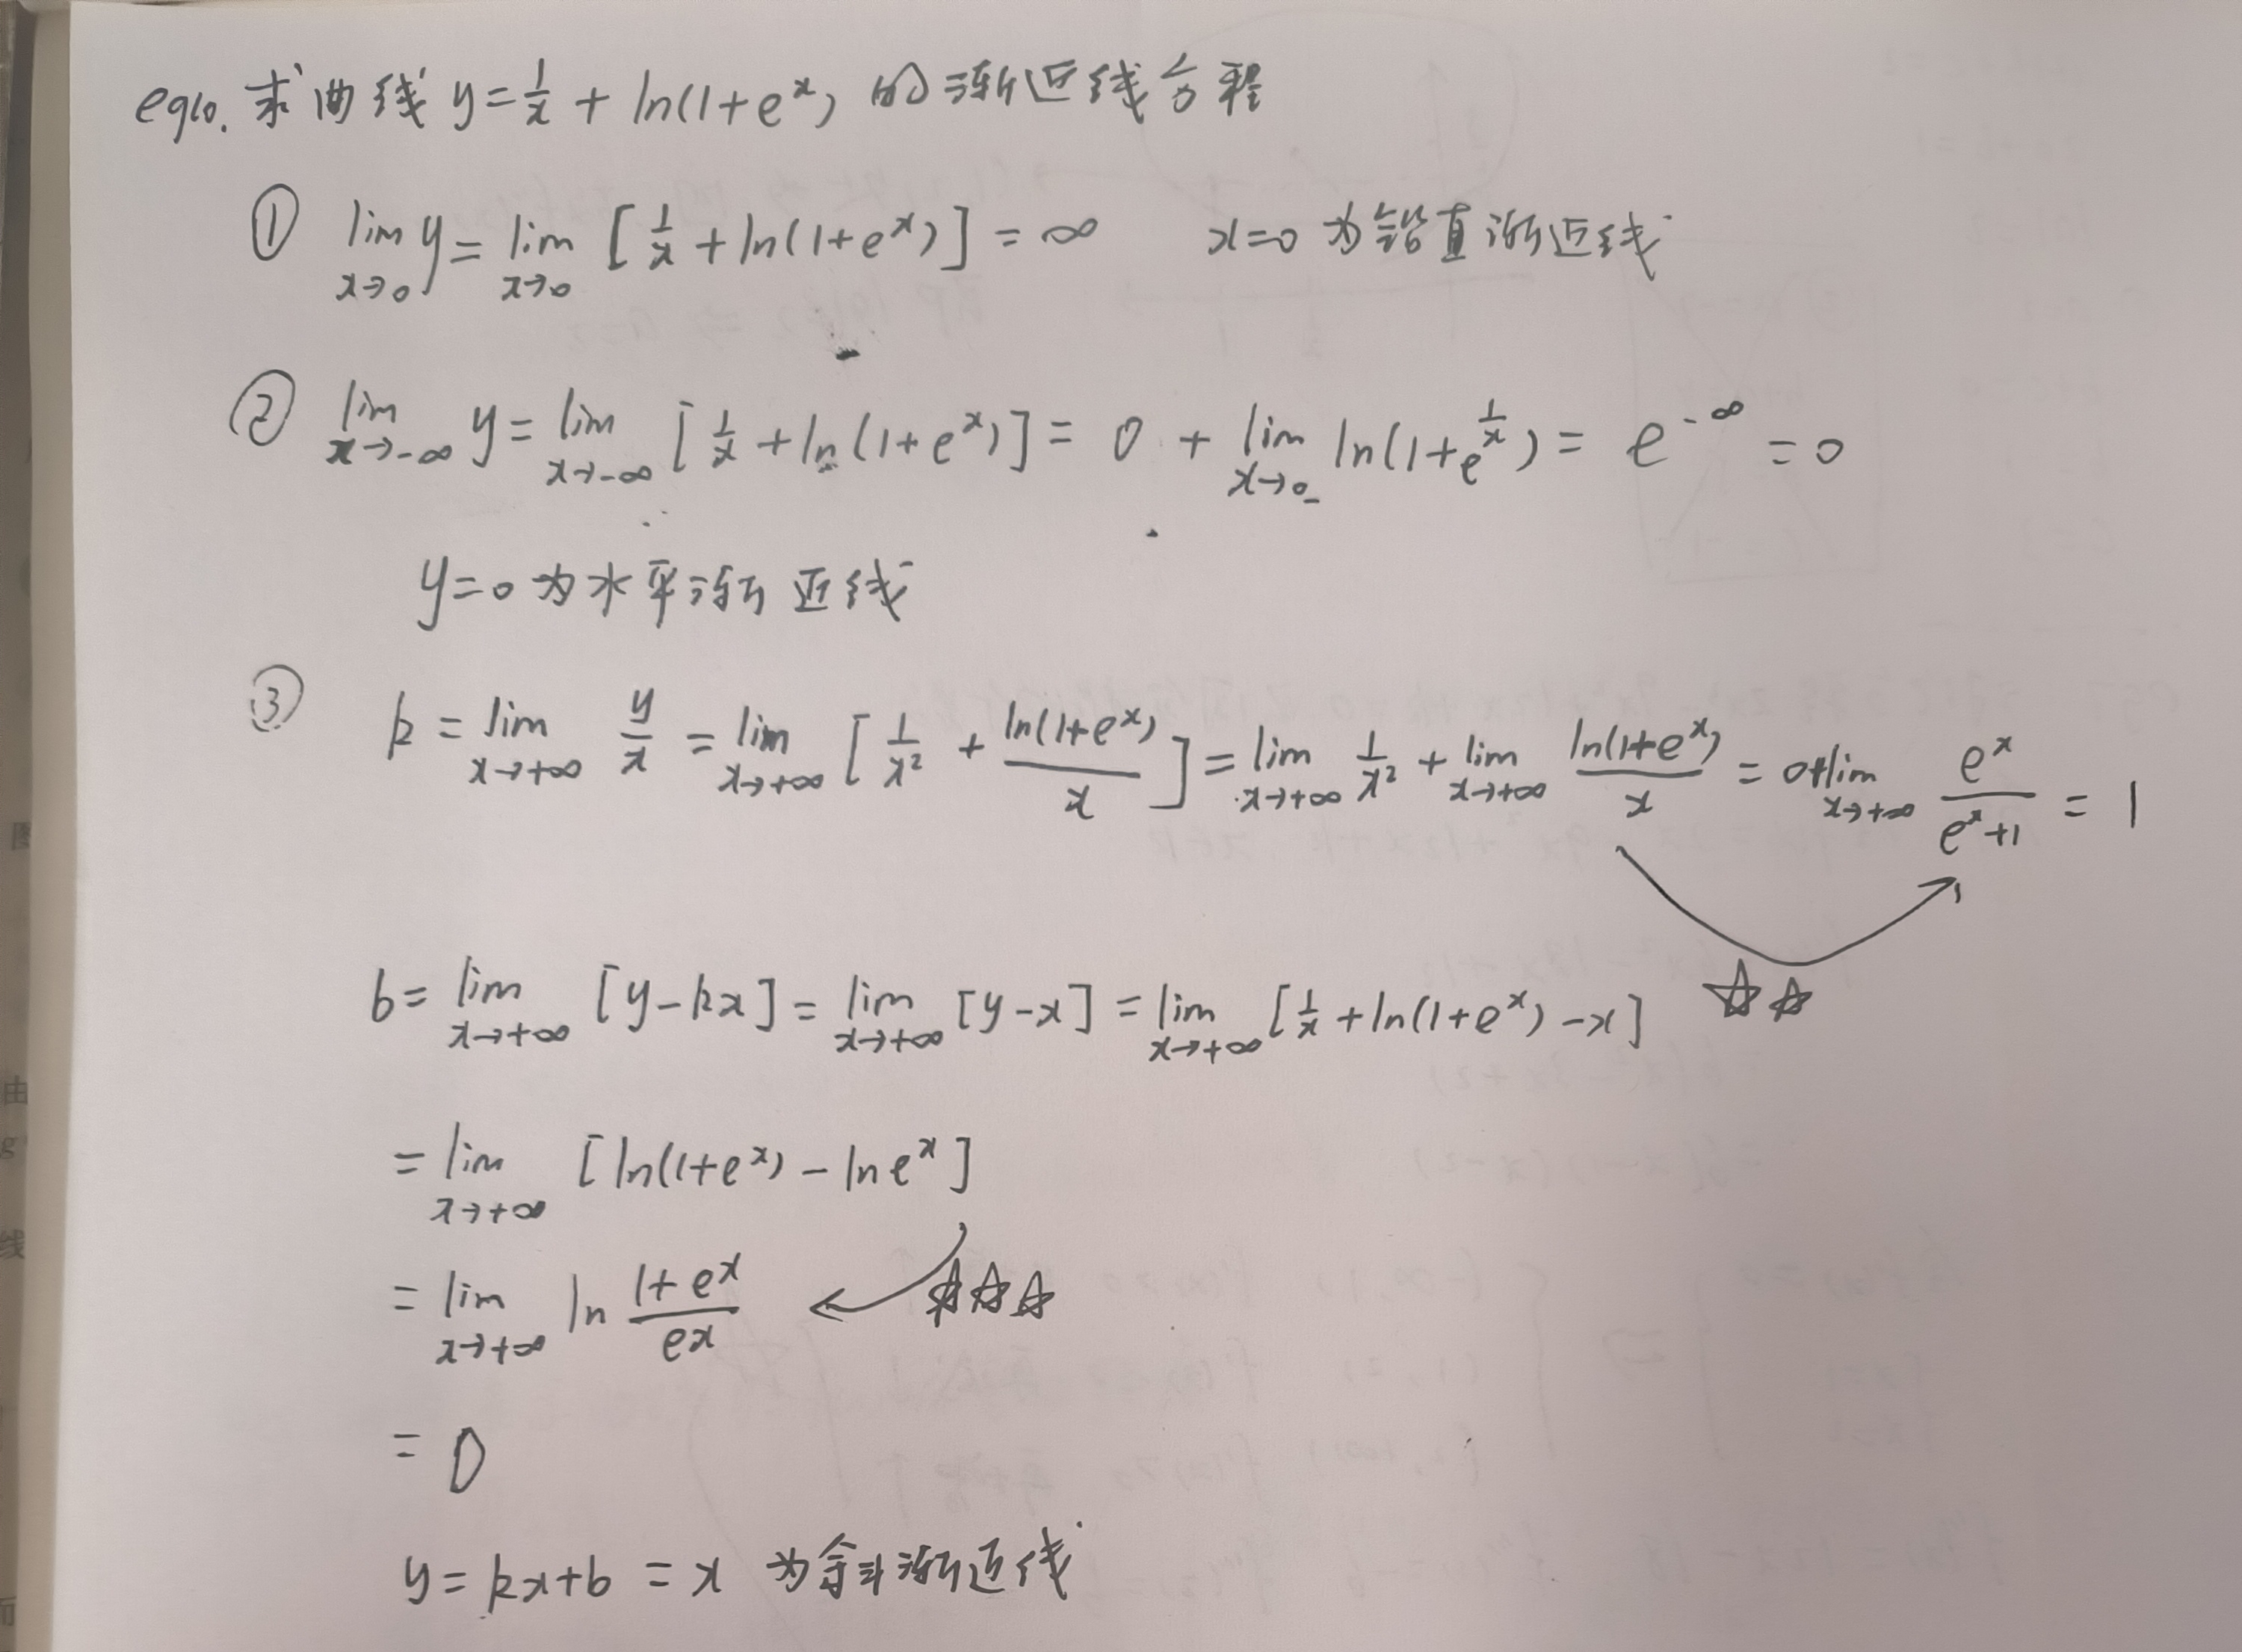 eg10. 求曲线 y = 1/x + ln(1+e^x) 的渐近线方程
① lim_{x→0} y = lim_{x→0} [1/x + ln(1+e^x)] = ∞ x=0 为铅直渐近线
② lim_{x→-∞} y = lim_{x→-∞} [1/x + ln(1+e^x)] = 0 + lim_{x→0_-} ln(1+e^{1/x}) = e^{-∞} = 0
y=0 为水平渐近线
③ k = lim_{x→+∞} y/x = lim_{x→+∞} [1/x² + ln(1+e^x)/x] = lim_{x→+∞} 1/x² + lim_{x→+∞} ln(1+e^x)/x = 0+lim_{x→+∞} e^x/(e^x+1) = 1
b = lim_{x→+∞} [y-kx] = lim_{x→+∞} [y-x] = lim_{x→+∞} [1/x + ln(1+e^x) - x] ☆☆
= lim_{x→+∞} [ln(1+e^x) - ln e^x]
= lim_{x→+∞} ln (1+e^x)/e^x ← ☆☆☆
= 0
y = kx+b = x 为斜渐近线
图
由
g
线
而